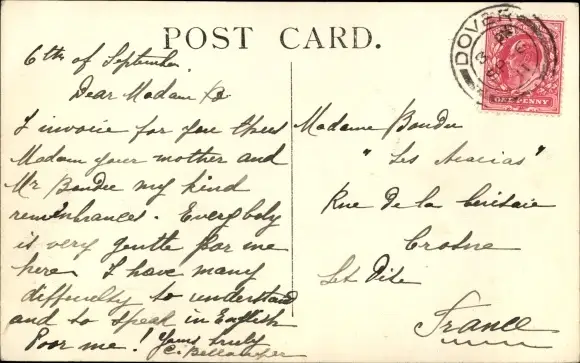 POST CARD.
DOVER
ONE PENNY
6th of September
Dear Madame B
I invoice for you thees
Madam your mother and
Mr Boudee my kind
remenbrances. Everybody
is very gentle for me
here. I have many
difficulty to understand
and to speak in English
Poor me! Yours truly
C.
Madame Boudee
"Les Acacias"
Rue De la Cerisaie
Crosne
Set Oise
France